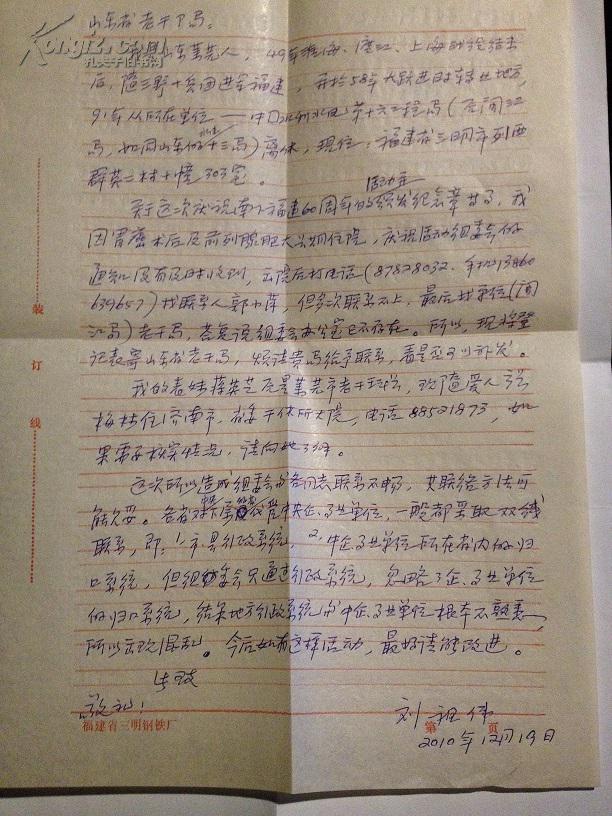 山东省老干局：
我是山东莱芜人，49年淮海、渡江、上海战役结束
后，随三野十兵团进军福建，并于58年大跃进时转业地方，
91年从所在单位——中国水利水电第十六工程局（原闽江
局，如同山东的十三局）离休，现住：福建省三明市列西
群英二村十幢303室。
关于这次庆祝南下福建60周年的颁发纪念章
活动
因胃癌术后及前列腺肥大住院，庆祝活动组委会的
通知没有及时收到，出院后打电话（87828032、手机13860
639657）找联系人郭小萍，但多次联系不上，最后找单位（闽
江局）老干局，答复说组委会办公室已不存在。所以，现将登
记表寄山东省老干局，烦请贵局给予联系，看是否可以补发。
我的表妹蒋英芝原是莱芜市老干
梅村住济南市，省委干休所大院，电话88521873，如
果需要核实情况，请向她了解。
这次所以造成组委会与各同志联系不畅，其联络方法可
能欠妥。各省对下属及中央企、事业单位，一般都采取双线
联系，即：1、市县行政系统，2、中企、事业单位所在省内的归
口系统，但组委会只通过行政系统，忽略了企、事业单位
的归口系统，结果地方行政系统对中企、事业单位根本不熟悉，
所以出现混乱。今后如有这样活动，最好请能改进。
此致
敬礼！
刘祖伟
2010年12月19日
福建省三明钢铁厂
第 页
装
订
线
孔夫子旧书网